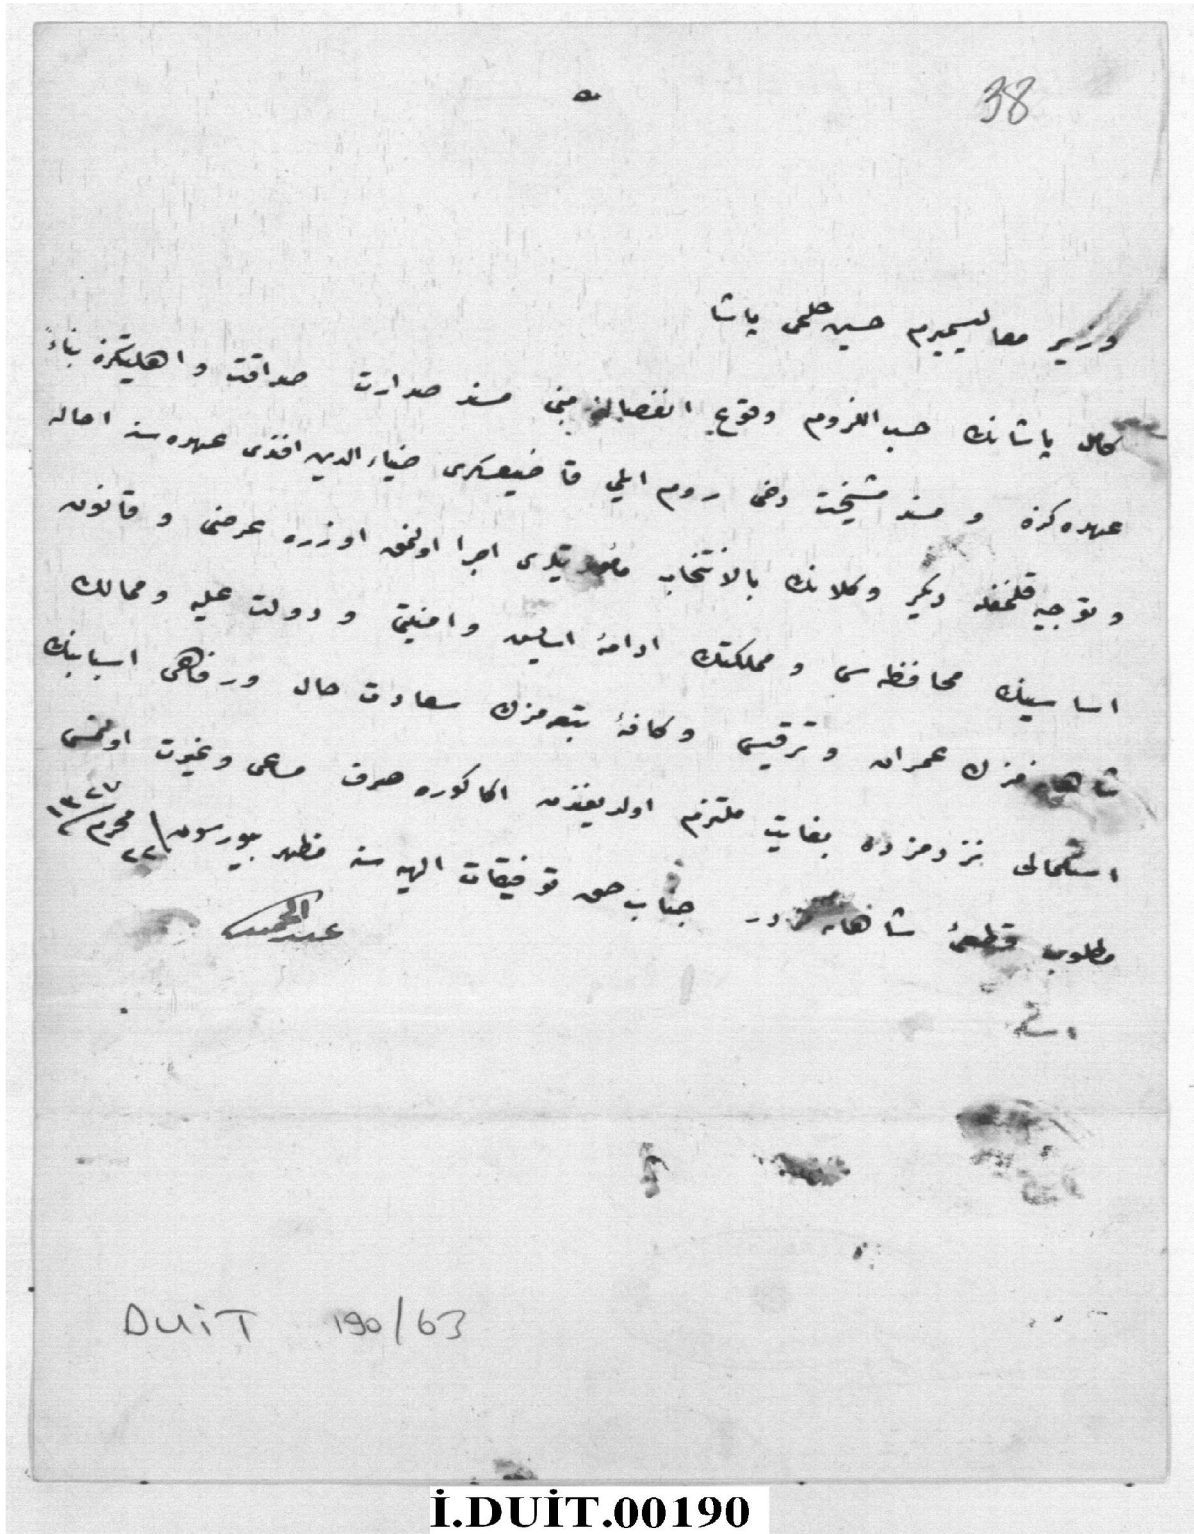 38
وزیر معالیسمیرم حسین حلمی پاشا
كامل پاشانك حسب اللزوم وقوع انفصالنه مبنی مسند صدارت صداقت و اهلیتكزه بناءً
عهده كزه و مسند مشیخت دخی روم ایلی قاضیعسكری ضیاء الدین افندی عهده سنه احاله
و توجیه قلنمغله دیكر وكلانك بالانتخاب مأموریتلری اجرا اولنمق اوزره عرضی و قانون
اساسینك محافظه سی و مملكتك ادامهٔ اسایش و امنیتی و دولت علیه و ممالك
شاهانه مزك عمران و ترقیسی و كافهٔ تبعه مزك سعادت حال و رفاهی اسبابنك
استكمالی نزدمزده بغایت ملتزم اولدیغندن اكا كوره صرف مساعی و غیرت اولنمسی
مطلوب قطعیٔ شاهانه مزدر جناب حق توفیقات الهیه سنه مظهر بیورسون ٢٢ محرم ١٣٢٧
عبدالحمید
DUİT 190/63
İ.DUİT.00190